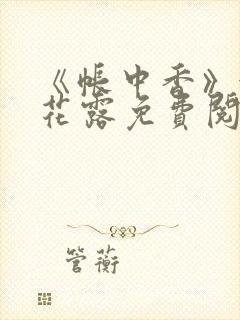 《帐中香》
花露免费阅
管蘅